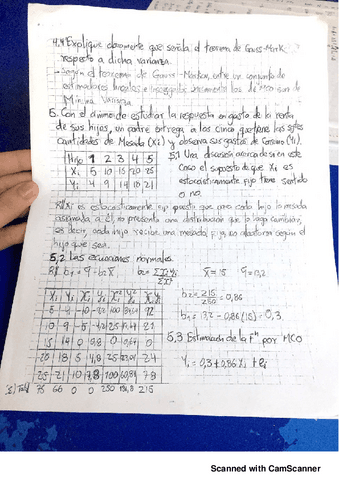 4.4 Explique claramente que señala el teorema de Gauss-Mark
respecto a dicha varianza.
- Según el teorema de Gauss-Markov, entre un conjunto de
estimadores lineales e insesgados, únicamente los de MCO son de
Mínima Varianza.
5. Con el ánimo de estudiar la respuesta en gasto de la renta
de sus hijos, un padre entrega a los cinco que tiene las sgtes
cantidades de Mesada (Xi) y observa sus gastos de Consumo (Yi).
Hijo 1 2 3 4 5
Xi 5 10 15 20 25
Yi 4 9 14 18 21
5.1 Una discusión acerca de si en este
caso el supuesto de que Xi es
estocásticamente fijo tiene sentido
o no.
R/ Xi es estocásticamente fijo puesto que para cada hijo la mesada
asignada a él, no presenta una distribución que lo haga cambiar,
es decir, cada hijo recibe una mesada fija, no aleatoria según el
hijo que sea.
5.2 Las ecuaciones normales.
R/ b1 = Y - b2 X b2 = X = 15 Y = 13,2
Xi Yi
5 4 -10 -9,2 100 84,64 92
10 9 -5 -4,2 25 17,64 21
15 14 0 0,8 0 0,64 0
20 18 5 4,8 25 23,04 24
25 21 10 7,8 100 60,84 78
Total 75 66 0 0 250 186,8 215
b2 = 215/250 = 0,86
b1 = 13,2 - 0,86(15) = 0,3
5.3 Estimada de la Fⁿ por MCO
Yi = 0,3 + 0,86 Xi + ei
Scanned with CamScanner